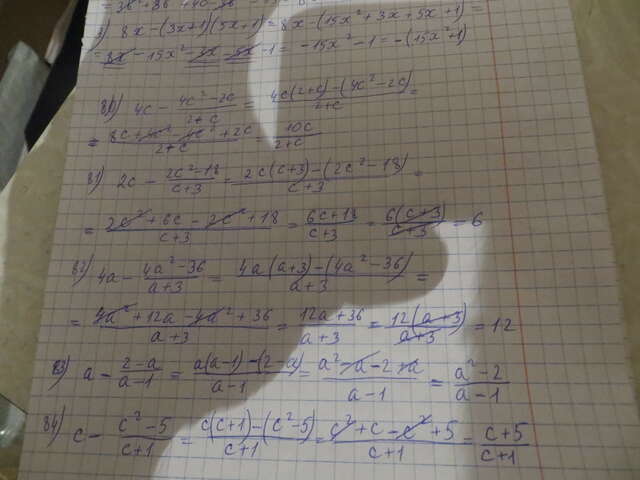 8x-(3x+1)(5x+1)=8x-(15x²+3x+5x+1)=
=8x-15x²-3x-5x-1=-15x²-1=-(15x²+1)
80) 4c - (4c²-2c)/(2+c) = (4c(2+c)-(4c²-2c))/(2+c) =
= (8c+4c²-4c²+2c)/(2+c) = 10c/(2+c)
81) 2c - (2c²-18)/(c+3) = (2c(c+3)-(2c²-18))/(c+3) =
= (2c²+6c-2c²+18)/(c+3) = (6c+18)/(c+3) = 6(c+3)/(c+3) = 6
82) 4a - (4a²-36)/(a+3) = (4a(a+3)-(4a²-36))/(a+3) =
= (4a²+12a-4a²+36)/(a+3) = (12a+36)/(a+3) = 12(a+3)/(a+3) = 12
83) a - (2-a)/(a-1) = (a(a-1)-(2-a))/(a-1) = (a²-a-2+a)/(a-1) = (a²-2)/(a-1)
84) c - (c²-5)/(c+1) = (c(c+1)-(c²-5))/(c+1) = (c²+c-c²+5)/(c+1) = (c+5)/(c+1)